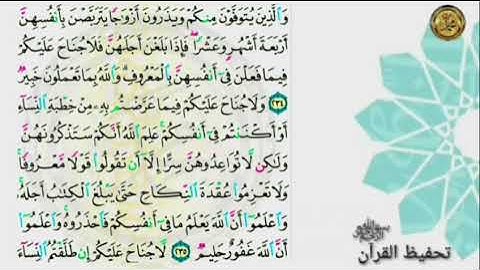 وَالَّذِينَ يُتَوَفَّوْنَ مِنكُمْ وَيَذَرُونَ أَزْوَٰجًا يَتَرَبَّصْنَ بِأَنفُسِهِنَّ
أَرْبَعَةَ أَشْهُرٍ وَعَشْرًا ۖ فَإِذَا بَلَغْنَ أَجَلَهُنَّ فَلَا جُنَاحَ عَلَيْكُمْ
فِيمَا فَعَلْنَ فِىٓ أَنفُسِهِنَّ بِالْمَعْرُوفِ ۗ وَاللَّهُ بِمَا تَعْمَلُونَ خَبِيرٌ
٢٣٤ وَلَا جُنَاحَ عَلَيْكُمْ فِيمَا عَرَّضْتُم بِهِۦ مِنْ خِطْبَةِ النِّسَآءِ
أَوْ أَكْنَنتُمْ فِىٓ أَنفُسِكُمْ ۚ عَلِمَ اللَّهُ أَنَّكُمْ سَتَذْكُرُونَهُنَّ
وَلَٰكِن لَّا تُوَاعِدُوهُنَّ سِرًّا إِلَّآ أَن تَقُولُوا۟ قَوْلًا مَّعْرُوفًا ۚ
وَلَا تَعْزِمُوا۟ عُقْدَةَ النِّكَاحِ حَتَّىٰ يَبْلُغَ الْكِتَٰبُ أَجَلَهُۥ ۚ
وَاعْلَمُوٓا۟ أَنَّ اللَّهَ يَعْلَمُ مَا فِىٓ أَنفُسِكُمْ فَاحْذَرُوهُ ۚ وَاعْلَمُوٓا۟
أَنَّ اللَّهَ غَفُورٌ حَلِيمٌ ٢٣٥ لَّا جُنَاحَ عَلَيْكُمْ إِن طَلَّقْتُمُ النِّسَآءَ
تحفيظ القرآن